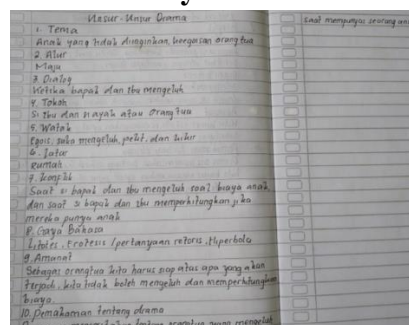 Unsur-Unsur Drama
1. Tema
Anak yang tidak diinginkan, keegoisan orang tua
2. Alur
Maju
3. Dialog
Ketika bapak dan Ibu mengeluh
4. Tokoh
Si Ibu dan atau orang tua
5. Watak
Egois, suka mengeluh, pelit, dan
6. Latar
Rumah
7. Konflik
Saat si bapak dan Ibu mengeluh soal biaya anak,
dan saat si bapak dan Ibu memperhitungkan jika
mereka punya anak
8. Gaya Bahasa
Litotes, Erotesis /pertanyaan retoris, Hiperbola
9. Amanat
Sebagai orangtua kita harus siap atas apa yang akan
terjadi, kita tidak boleh mengeluh dan memperhitungkan
biaya.
10. Pemahaman tentang drama
orangtua yang mengeluh
saat mempunyai seorang